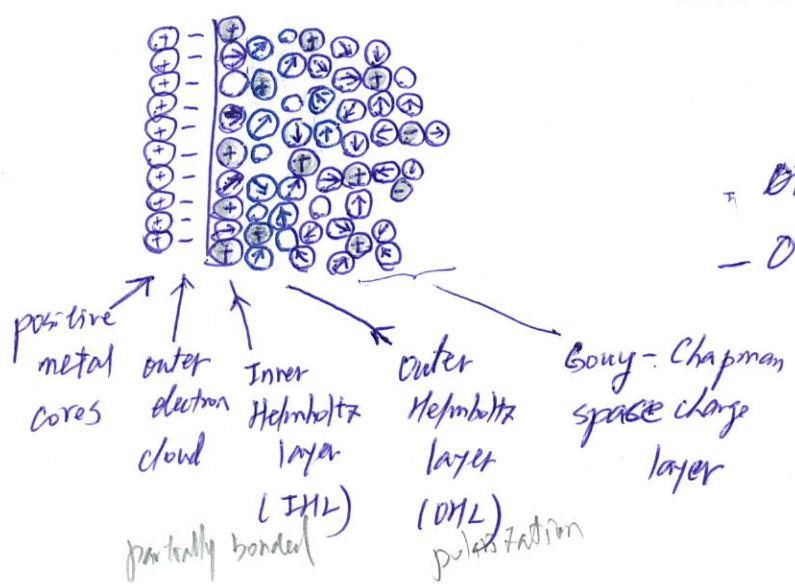 positive
metal
cores
outer
electron
cloud
Inner
Helmholtz
layer
(IHL)
partially bonded
Outer
Helmholtz
layer
(OHL)
polarization
Gouy-Chapman
space charge
layer